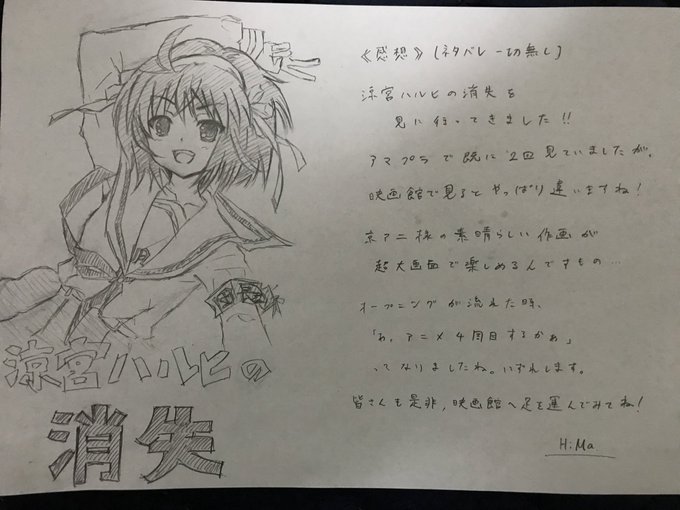 団長
涼宮ハルヒの
消失
《感想》(ネタバレ一切無し)
涼宮ハルヒの消失を
見に行ってきました!!
アマプラで既に2回見ていましたが、
映画館で見るとやっぱり違いますね!
京アニ様の素晴らしい作画が
超大画面で楽しめるんですもの…
オープニングが流れた時、
「あ、アニメ4周目するかぁ」
ってなりましたね。いずれします。
皆さんも是非、映画館へ足を運んでみてね!
H:Ma